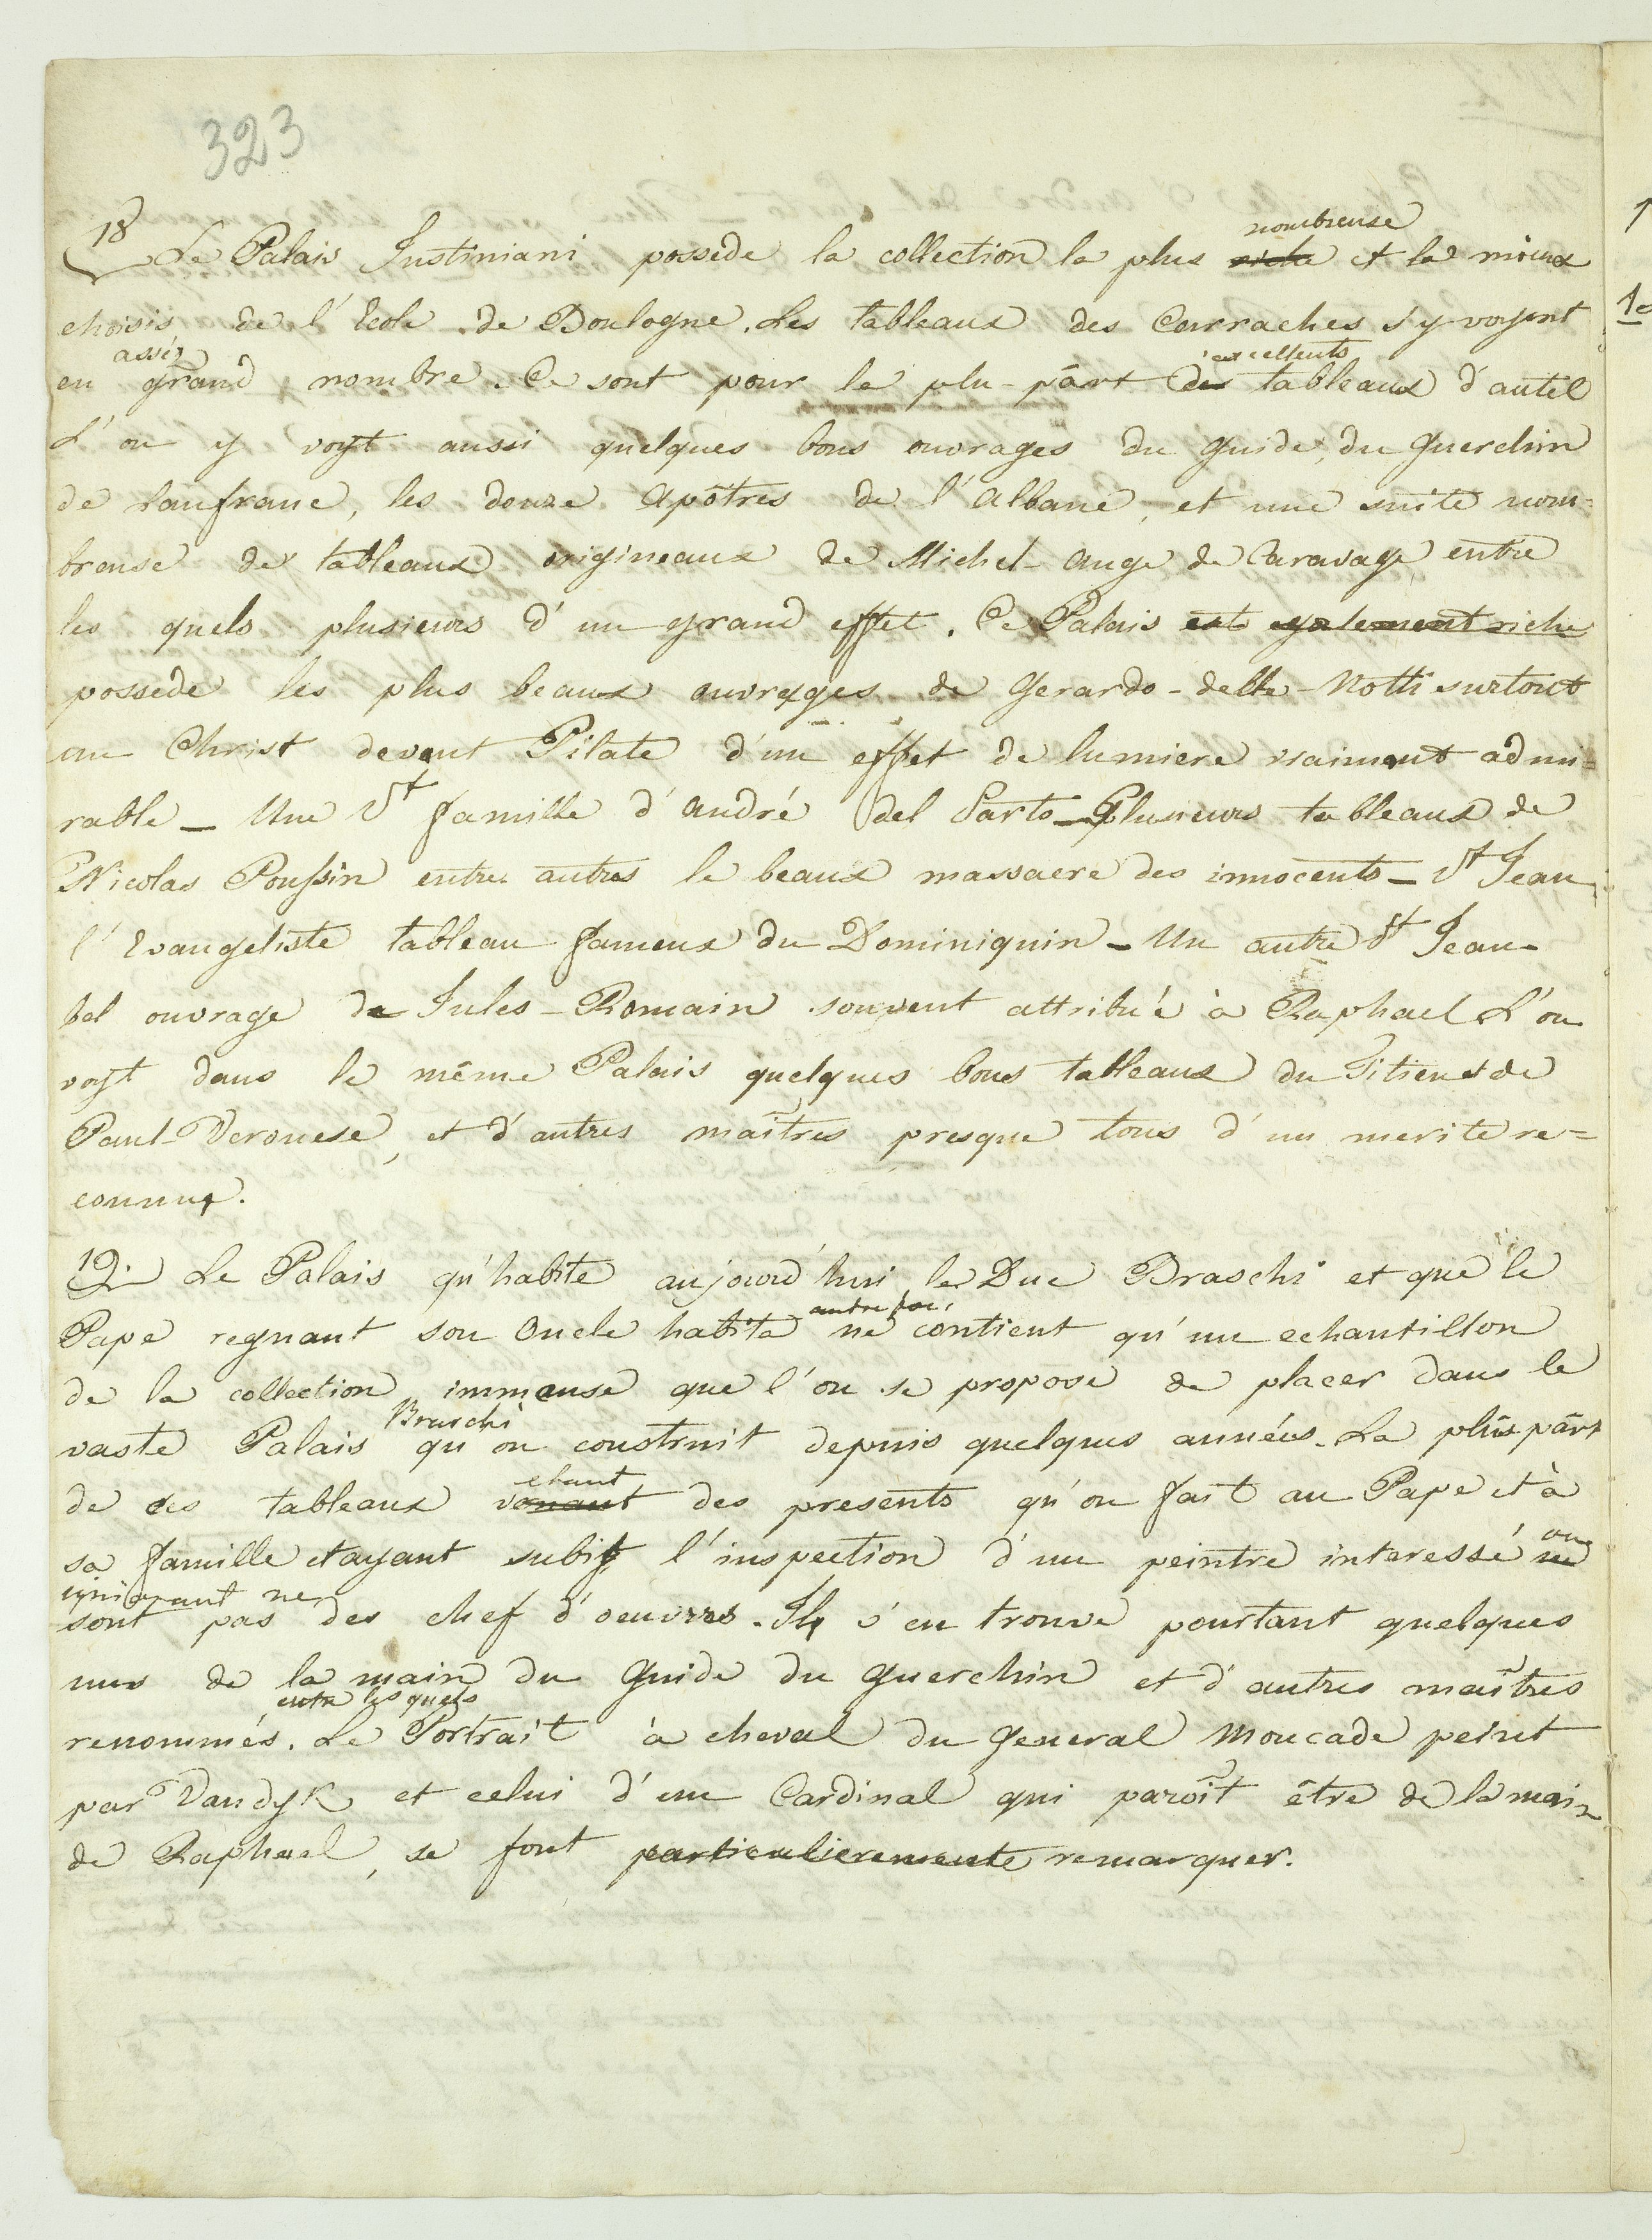 323
18 Le Palais Justiniani possede la collection la plus nombreuse et la mieux
choisis de l'Ecole de Boulogne. Les tableaux des Carraches s'y voyent
en assés grand nombre. Ce sont pour la plu-pârt d'excellents tableaux d'autel
L'on y voyt aussi quelques bons ouvrages du Guide, du Guerchin
de Lanfranc, les douze Apôtres de l'Albane, et une suite nom=
breuse de tableaux origineaux de Michel-Ange de Caravage entre
les quels plusieurs d'un grand effet. Ce Palais est egalement riche
possede les plus beaux ouvrages de Gerardo-delle-Notti surtout
un Christ devant Pilate d'un effet de lumiere vraiment admi=
rable - Une St famille d'André del Sarto - Plusieurs tableaux de
Nicolas Poussin entre autres le beaux massacre des innocents - St Jean
l'Evangeliste tableau fameux du Dominiquin - Un autre St Jean
bel ouvrage de Jules-Romain souvent attribué à Raphael L'on
voyt dans le même Palais quelques bons tableaux du Titien et de
Paul-Veronese, et d'autres maîtres presque tous d'un merite re=
connu.
19. Le Palais qu'habite aujourd'hui le Duc Braschi et que le
Pape regnant son Oncle habita autre fois, ne contient qu'un echantillon
de la collection immense que l'on se propose de placer dans le
vaste Palais Braschi qu'on construit depuis quelques années. La plus pârt
de ces tableaux venant etant des presents qu'on fait au Pape et à
sa famille et ayant subit l'inspection d'un peintre interessé ne ou
igniorant ne sont pas des chef d'oeuvres. Il s'en trouve pourtant quelques
uns de la main du Guide du Guerchin et d'autres maîtres
renommés. entre les quels Le Portrait à cheval du General Moncade peint
par Vandyk et celui d'un Cardinal qui paroît être de la main
de Raphael, se font particulierement remarquer.